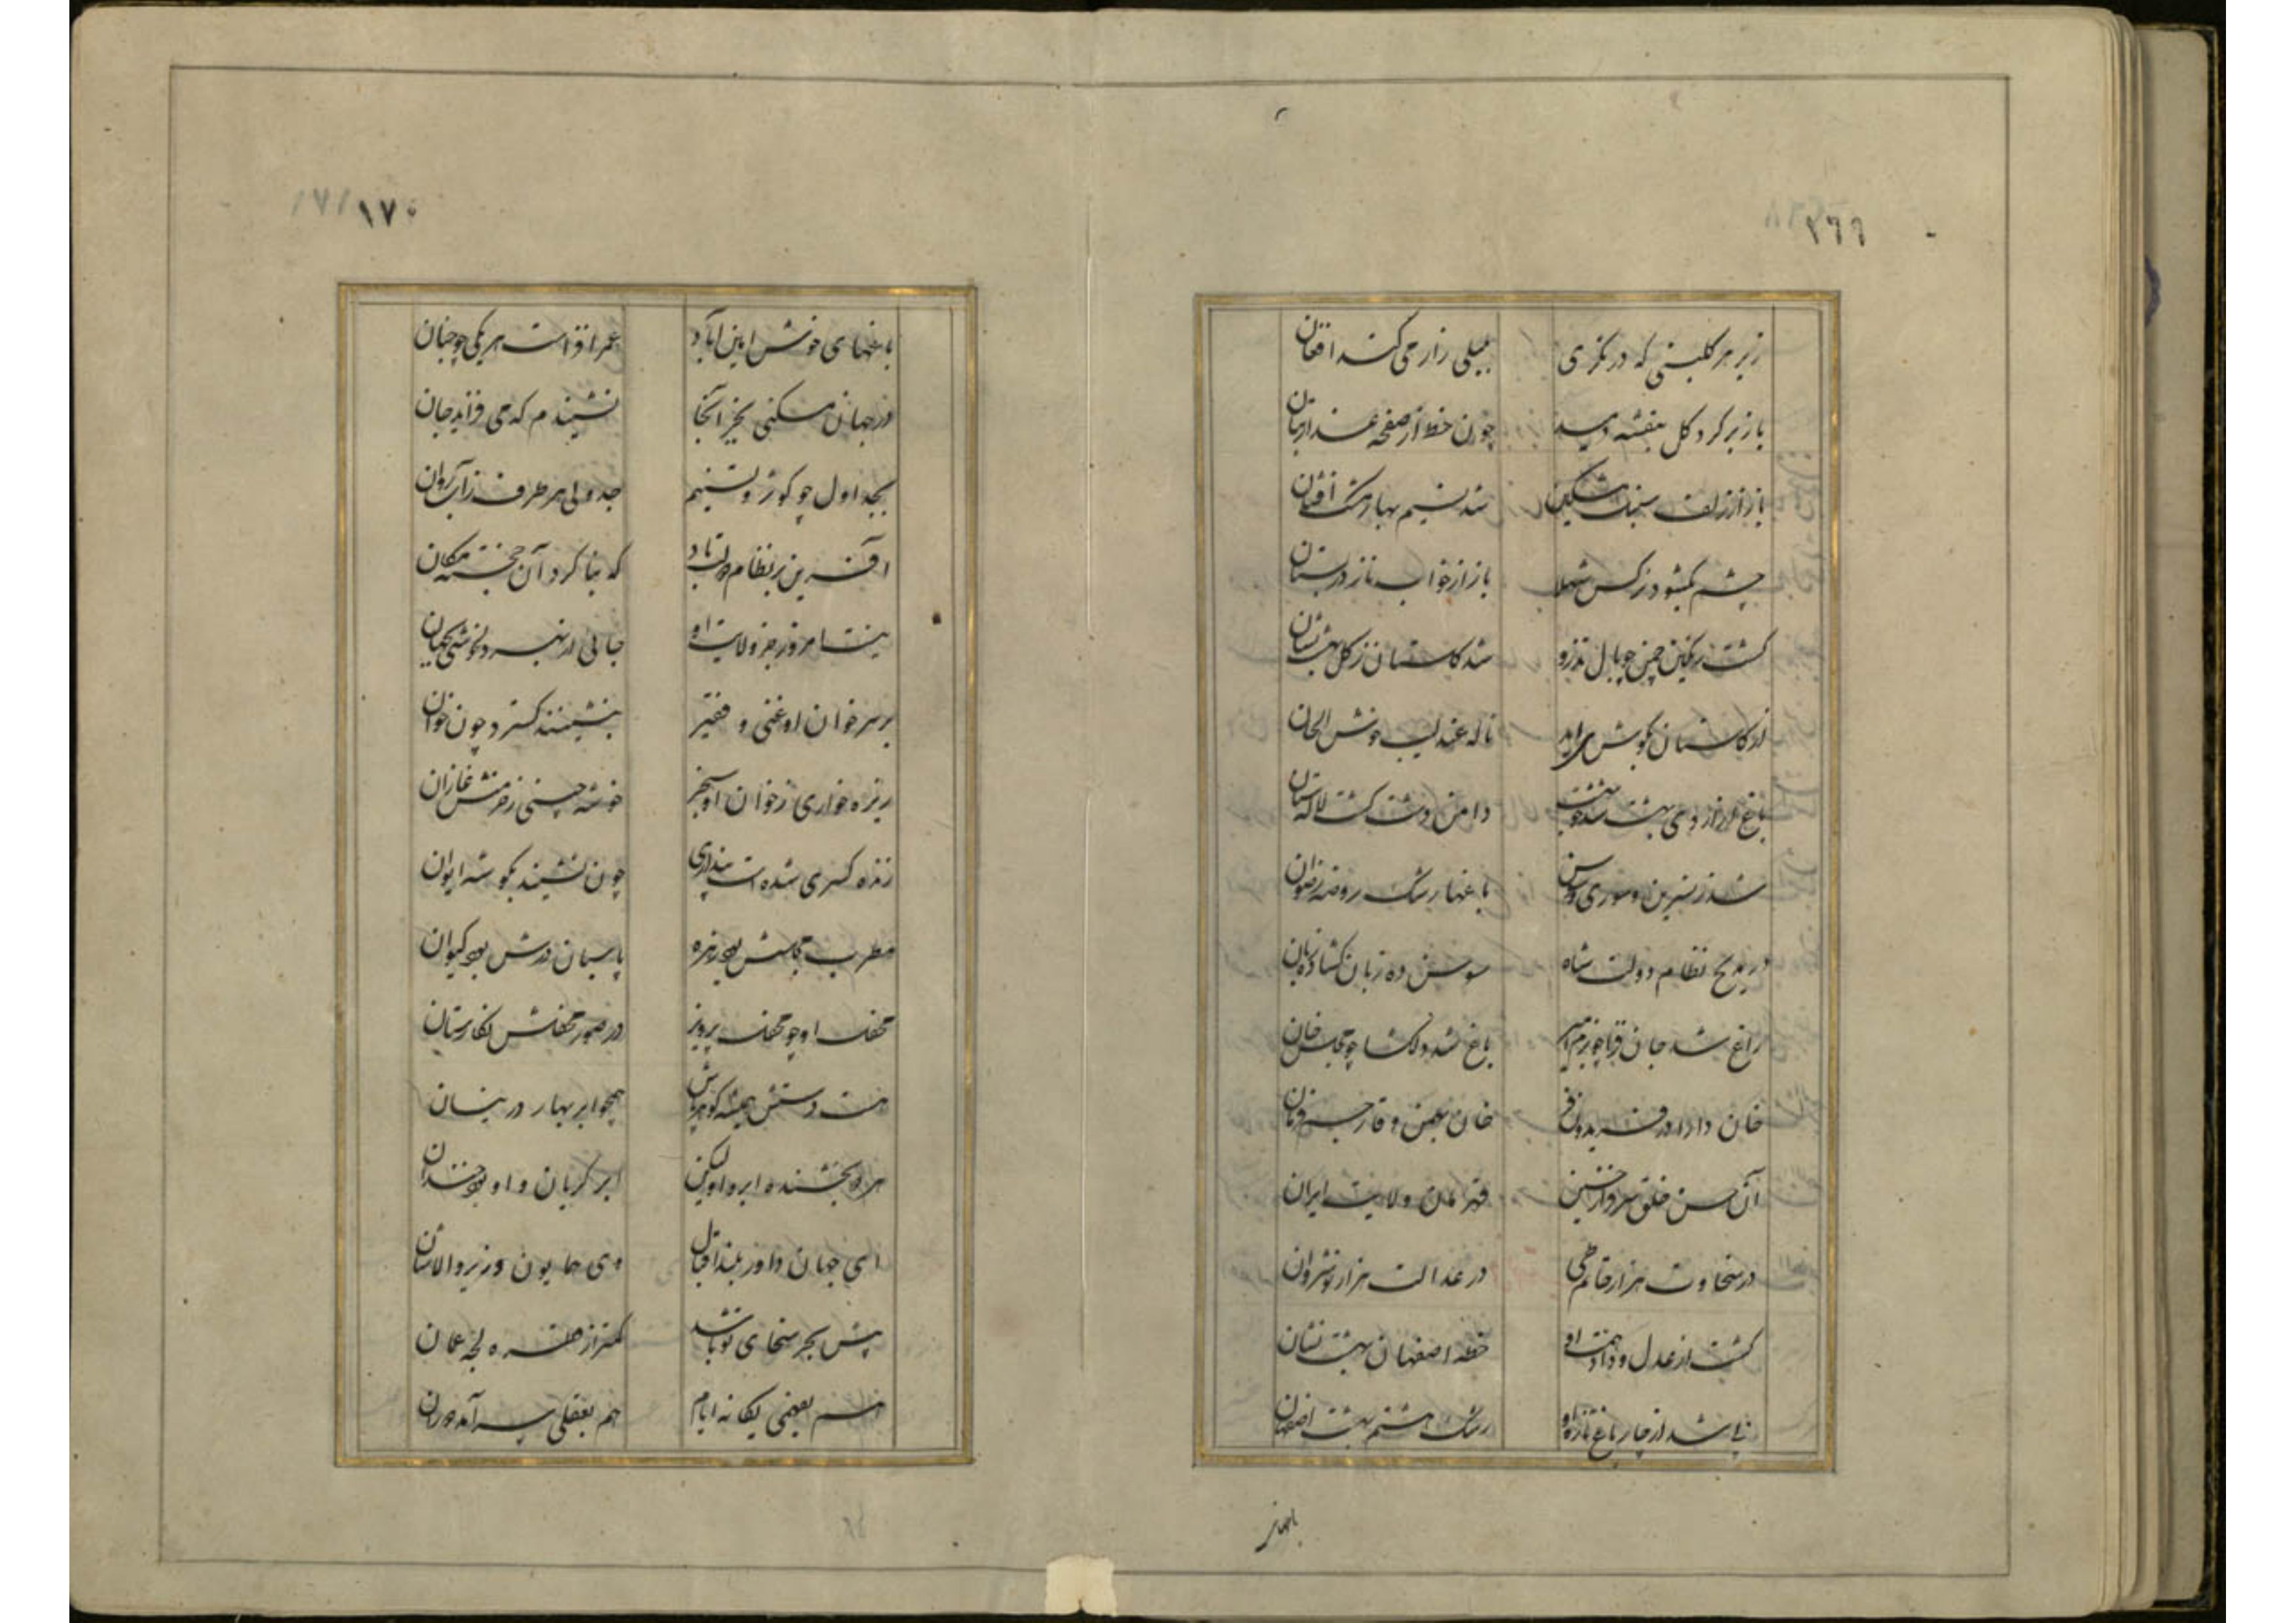 ۲۶۶
زیر هر گلبنی که در نگری بلبلی زار می کند افغان
باز بر گرد گل بنفشه دمید چون خط از صفحه عذار بتان
باز از زلف سنبل مشکین شد نسیم بهار مشک افشان
چشم بگشود نرگس شهلا باز از خواب ناز در بستان
گشت رنگین چمن چو بال تذرو شد گلستان ز گل بهشت نشان
از گلستان بگوش می آید ناله عندلیب خوش الحان
باغ از اردی بهشت شد دامن دشت گشت لالستان
شد ز نسرین و سوری و سوسن باغها رشک روضه رضوان
در مدیح نظام دولت شاه سوسن ده زبان گشاده زبان
راغ شد جان فزا چو بزم امیر باغ شد دلگشا چو مجلس خان
خان دارا در فریدون فر خان بهمن وقار جم فرمان
آن حسن خلق قهرمان ولایت ایران
در سخاوت هزار حاتم طی در عدالت هزار نوشروان
گشت از عدل و داد و همت او خطه اصفهان بهشت نشان
نی شد از چار باغ تازه او رشک هشتم بهشت اصفهان
باغهای
۱۷۰
باغهای خوش امین آباد عمر افزاست هر یکی چو جنان
در جهان مسکنی بجز آنجا نشنیدم که می فزاید جان
بجداول چو کوثر و تسنیم جدولی هر طرف ز آب روان
آفرین بر نظام دولت باد که بنا کرد آن خجسته مکان
نیست امروز جز ولایت او جائی ار نبرد بخوشی بجهان
بر سر خوان او غنی و فقیر بنشینند گسترد چون خوان
ریزه خواری ز خوان او سنجر خوشه چینی ز خرمنش غازان
زنده کسری شده است پنداری چون نشیند بگوشه ایوان
مطرب مجلسش بود زهره پاسبان درش بود کیوان
محفل او چو محفل پرویز در صور محفلش نگارستان
هست دستش همیشه گوهرپاش همچو ابر بهار در نیسان
هر دو بخشنده ابر و او لیکن ابر گریان و او بود خندان
ای جهان داور بلند اقبال وی همایون وزیر والاشان
پیش بحر سخای تو باشد کمتر از قطره لجه عمان
هم بفضلی یگانه ایام هم بعقلی سر آمد دوران